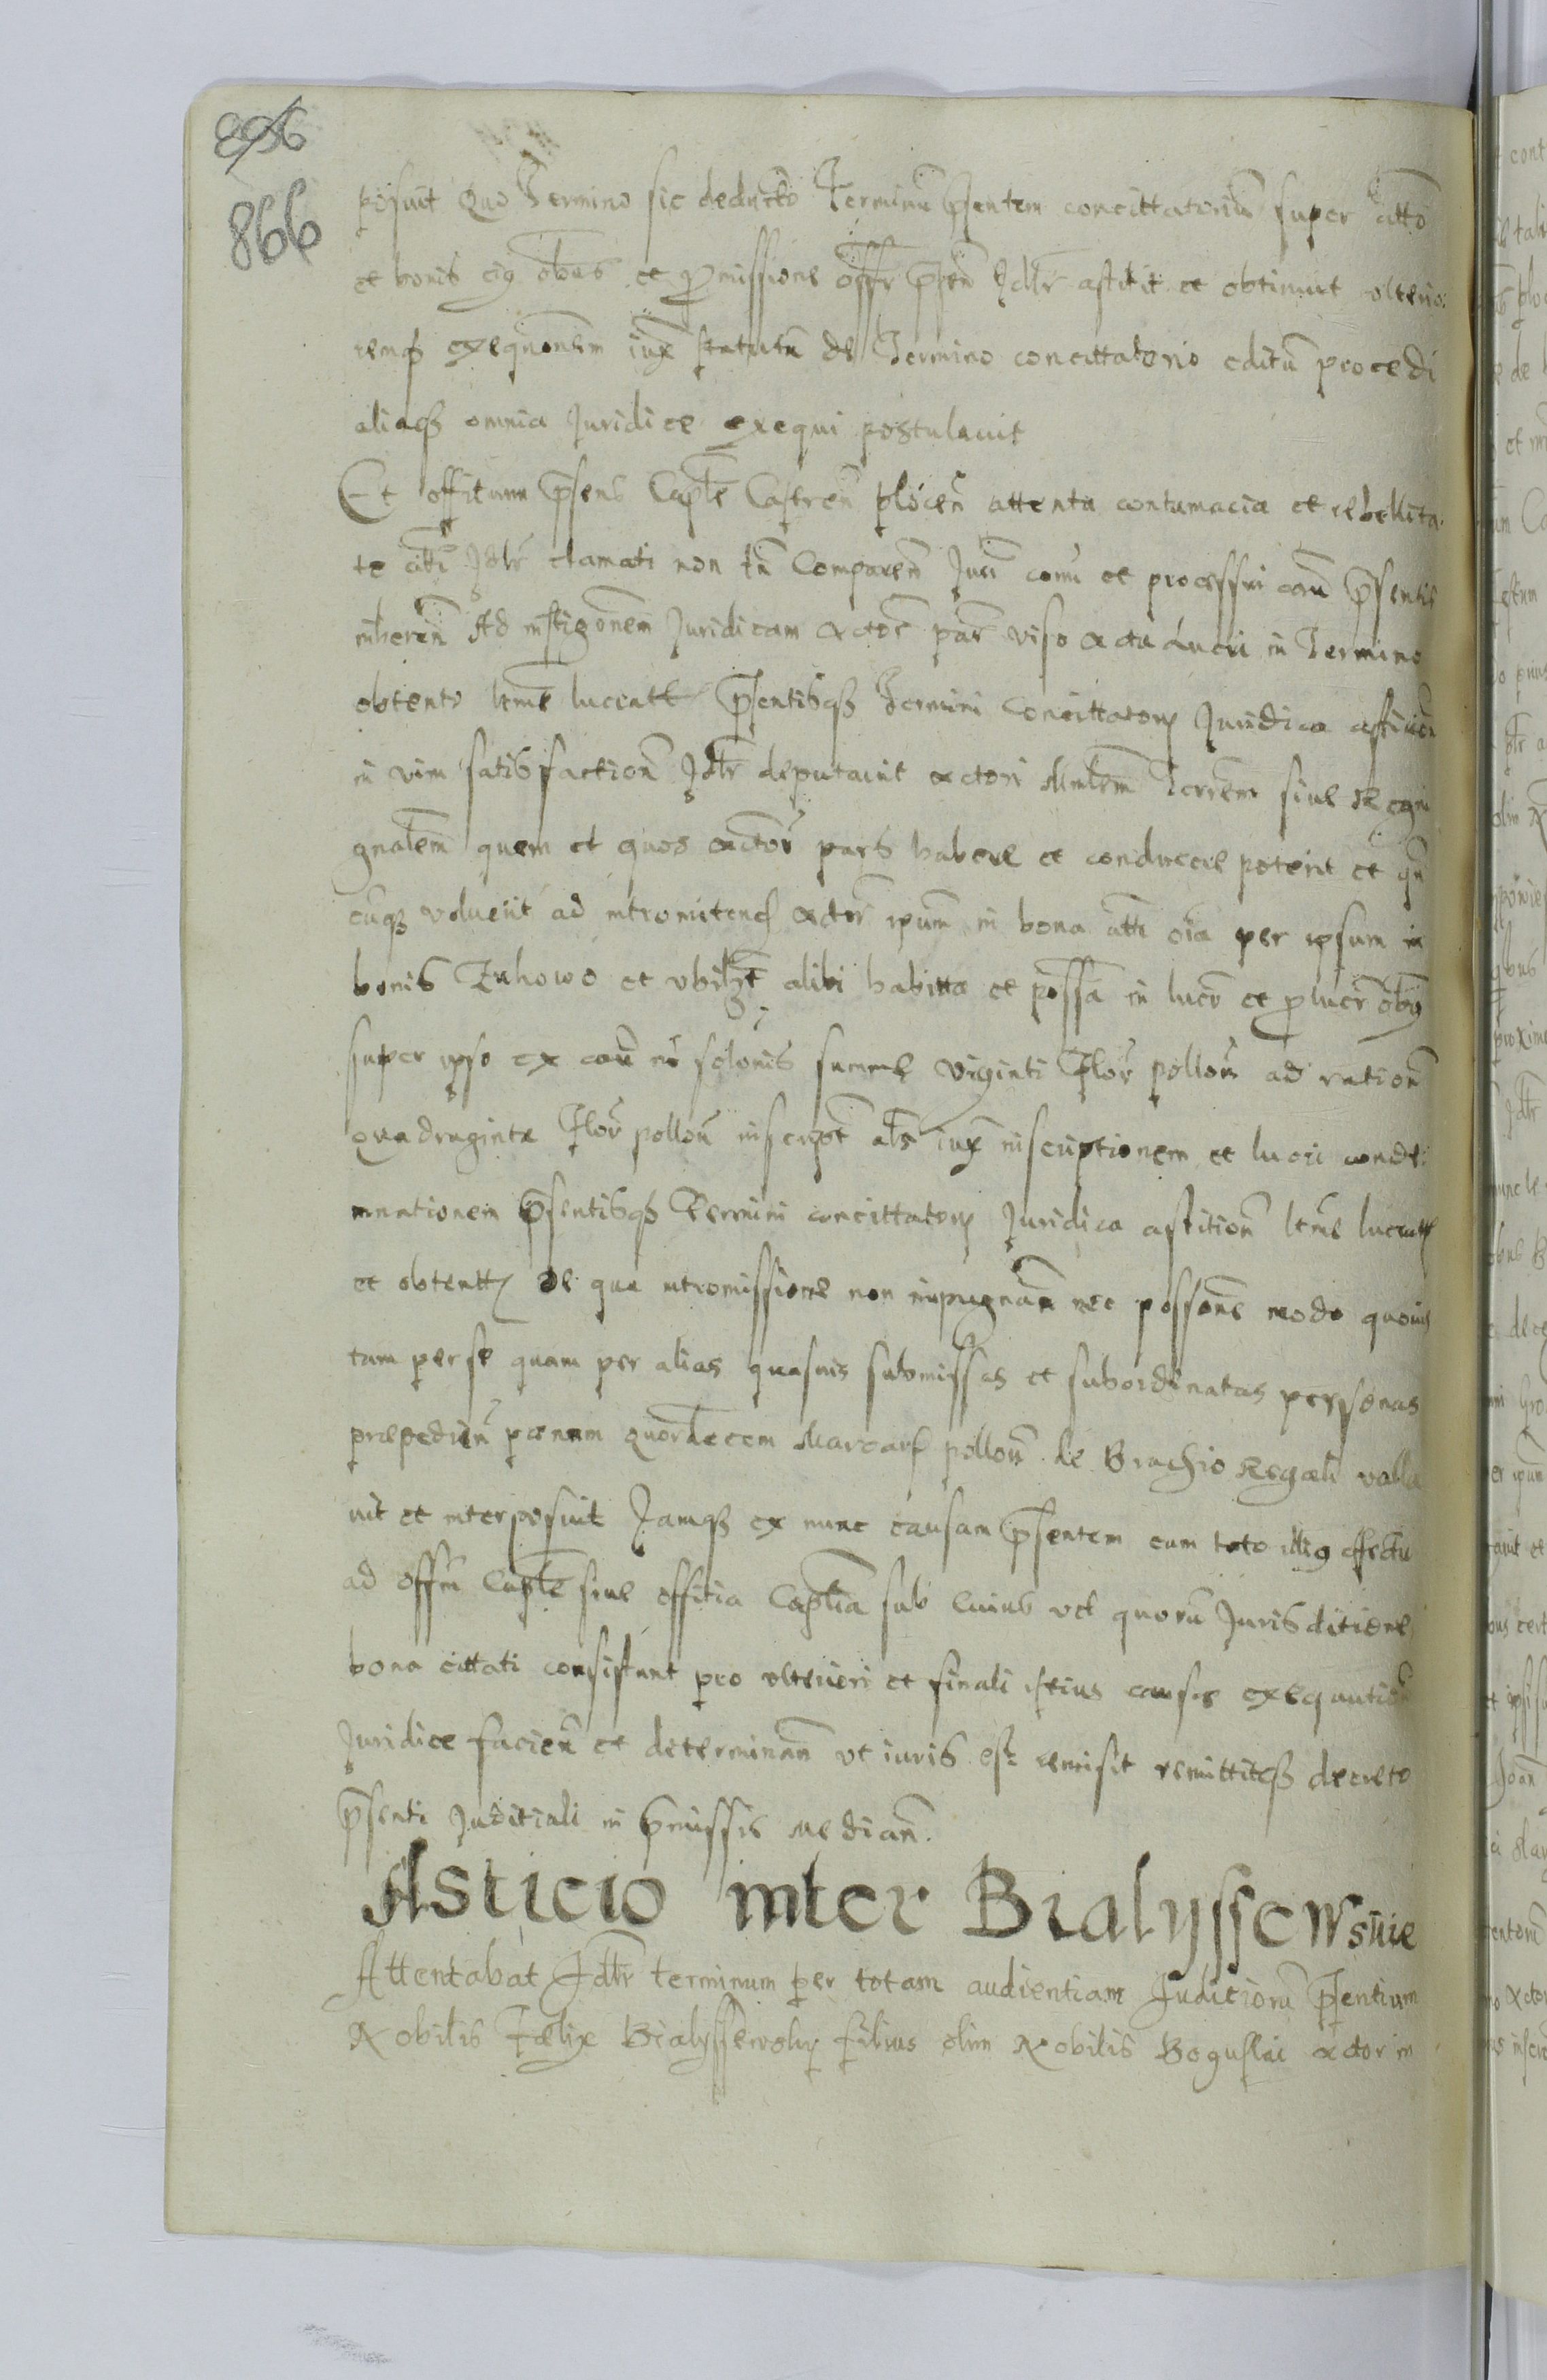 896
866
posuit Quo Termino sic deducto Terminū p̄sentem concittatoriū super citto
et bonis eiꝯ obus et ꝑmissione offi p̄sen Idtr astitit et obtinuit vlterio:
remqȝ exequonem iux statutū de Termino concittatorio editū procedi
aliaqȝ omnia Juridice exequi postulauit
Et offitium p̄sens Capłe Castren plocen attenta contumacia et rebellita
te citti Idtr clamati non tn Comparen Juri coni et processui cau p̄sentis
inheren Ad instigonem Juridicam actor par viso actu Lucri in Termino
obtento ltme lucratt p̄sentisqȝ Termini Concittatory Juridica astition
in vim satisfaction Idtr deputauit actori Mnltem Terrem siue Regni
gnalem quem et quos actor pars habere et conducere poterit et qn
cuqȝ voluerit ad intromitend actor ipum in bona citti oia per ipsum in
bonis Zuhowo et vbilȝt alibi habitta et possa in lucr et ꝑlucr obus
super ipso ex cau nō solonis summe viginti Flor pollon ad ration
quadraginta Flor pollon inscript als iux inscriptionem et lucri conde:
mnationem p̄sentisqȝ Termini concittatory Juridica astition ltme lucratt
et obtentt De qua intromissione non impugnan nec possone modo quouis
tam per se quam per alias quasuis submissas et subordinatas personas
præpedien pœnam quordecem Marcarū pollon de Brachio Regali valla
uit et interposuit Jamqȝ ex nunc causam p̄sentem cum toto illiꝯ effectu
ad offm Capłe siue offitia Capłia sub cuius vel quorū Jurisditione
bona cittati consistunt pro vlteriori et finali istius causæ exequution
Juridice facien et determinan vt iuris est remisit remittitqȝ decreto
p̄senti Juditiali in p̄missis median.
Asticio inter Bialyssewskie
Attentabat Idtr terminum per totam audientiam Juditiorū p̄sentium
Nobilis Fælix Bialyssewsky filius olim Nobilis Boguslai actor in